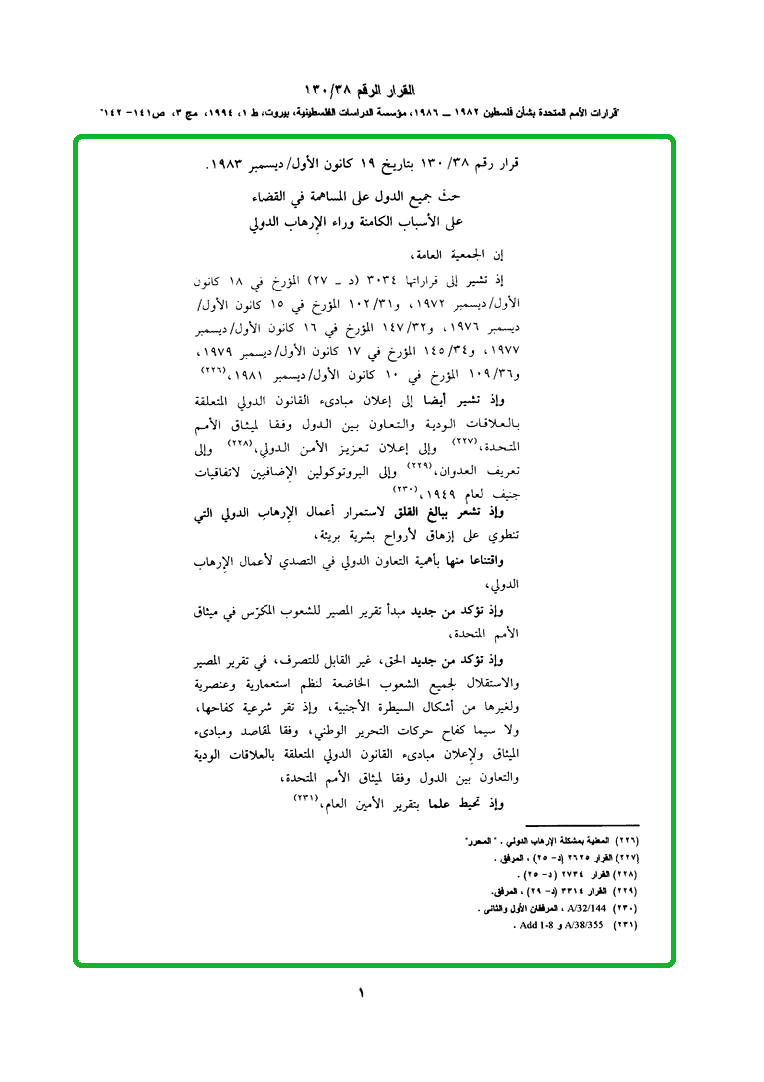 القرار الرقم ١٣٠/٣٨
"قرارات الأمم المتحدة بشأن فلسطين ١٩٨٢ ــ ١٩٨٦، مؤسسة الدراسات الفلسطينية، بيروت، ط ١، ١٩٩٤، مج ٣، ص١٤١- ١٤٢"
قرار رقم ١٣٠/٣٨ بتاريخ ١٩ كانون الأول/ديسمبر ١٩٨٣.
حثّ جميع الدول على المساهمة في القضاء
على الأسباب الكامنة وراء الإرهاب الدولي
إن الجمعية العامة،
إذ تشير إلى قراراتها ٣٠٣٤ (د ـ ٢٧) المؤرخ في ١٨ كانون
الأول/ديسمبر ١٩٧٢، و١٠٢/٣١ المؤرخ في ١٥ كانون الأول/
ديسمبر ١٩٧٦، و١٤٧/٣٢ المؤرخ في ١٦ كانون الأول/ديسمبر
١٩٧٧، و١٤٥/٣٤ المؤرخ في ١٧ كانون الأول/ديسمبر ١٩٧٩،
و١٠٩/٣٦ المؤرخ في ١٠ كانون الأول/ديسمبر ١٩٨١،(٢٢٦)
وإذ تشير أيضا إلى إعلان مبادىء القانون الدولي المتعلقة
بالعلاقات الودية والتعاون بين الدول وفقا لميثاق الأمم
المتحدة،(٢٢٧) وإلى إعلان تعزيز الأمن الدولي،(٢٢٨) وإلى
تعريف العدوان،(٢٢٩) وإلى البروتوكولين الإضافيين لاتفاقيات
جنيف لعام ١٩٤٩،(٢٣٠)
وإذ تشعر ببالغ القلق لاستمرار أعمال الإرهاب الدولي التي
تنطوي على إزهاق لأرواح بشرية بريئة،
واقتناعا منها بأهمية التعاون الدولي في التصدي لأعمال الإرهاب
الدولي،
وإذ تؤكد من جديد مبدأ تقرير المصير للشعوب المكرّس في ميثاق
الأمم المتحدة،
وإذ تؤكد من جديد الحق، غير القابل للتصرف، في تقرير المصير
والاستقلال لجميع الشعوب الخاضعة لنظم استعمارية وعنصرية
ولغيرها من أشكال السيطرة الأجنبية، وإذ تقر شرعية كفاحها،
ولا سيما كفاح حركات التحرير الوطني، وفقا لمقاصد ومبادىء
الميثاق ولإعلان مبادىء القانون الدولي المتعلقة بالعلاقات الودية
والتعاون بين الدول وفقا لميثاق الأمم المتحدة،
وإذ تحيط علما بتقرير الأمين العام،(٢٣١)
(٢٢٦) المعنية بمشكلة الإرهاب الدولي . "المحرر"
(٢٢٧) القرار ٢٦٢٥ (د- ٢٥) ، المرفق .
(٢٢٨) القرار ٢٧٣٤ (د- ٢٥) .
(٢٢٩) القرار ٣٣١٤ (د- ٢٩) ، المرفق.
(٢٣٠) A/32/144 ، المرفقان الأول والثاني .
(٢٣١) A/38/355 و Add 1-8 .
١